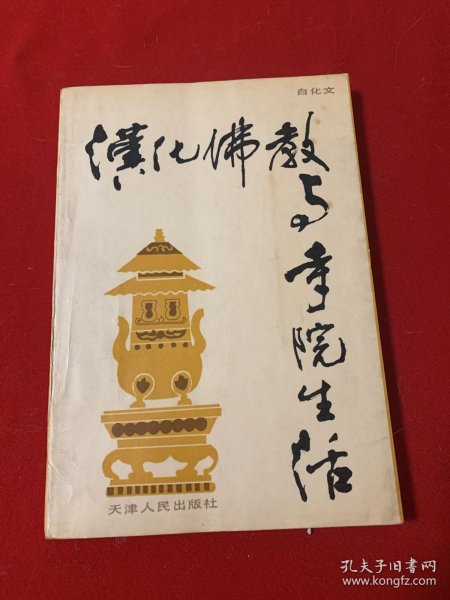 白化文
漢化佛教
与寺院生活
天津人民出版社
孔夫子旧书网
www.kongfz.com